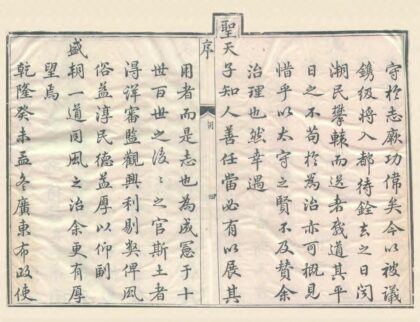 守於志厥功偉矣今以被議
鐫級將入都待銓去之日閤
潮民攀轅而送者載道其平
日之不苟於為治亦可概見
惜乎以太守之賢不及贊余
治理也然幸遇
聖天子知人善任當必有以展其
序
用者而是志也為成憲于十
世百世之後後之官斯土者
得詳審監觀興利剔弊俾風
俗益淳民德益厚以仰副
盛朝一道同風之治余更有厚
望焉
乾隆癸未孟冬廣東布政使